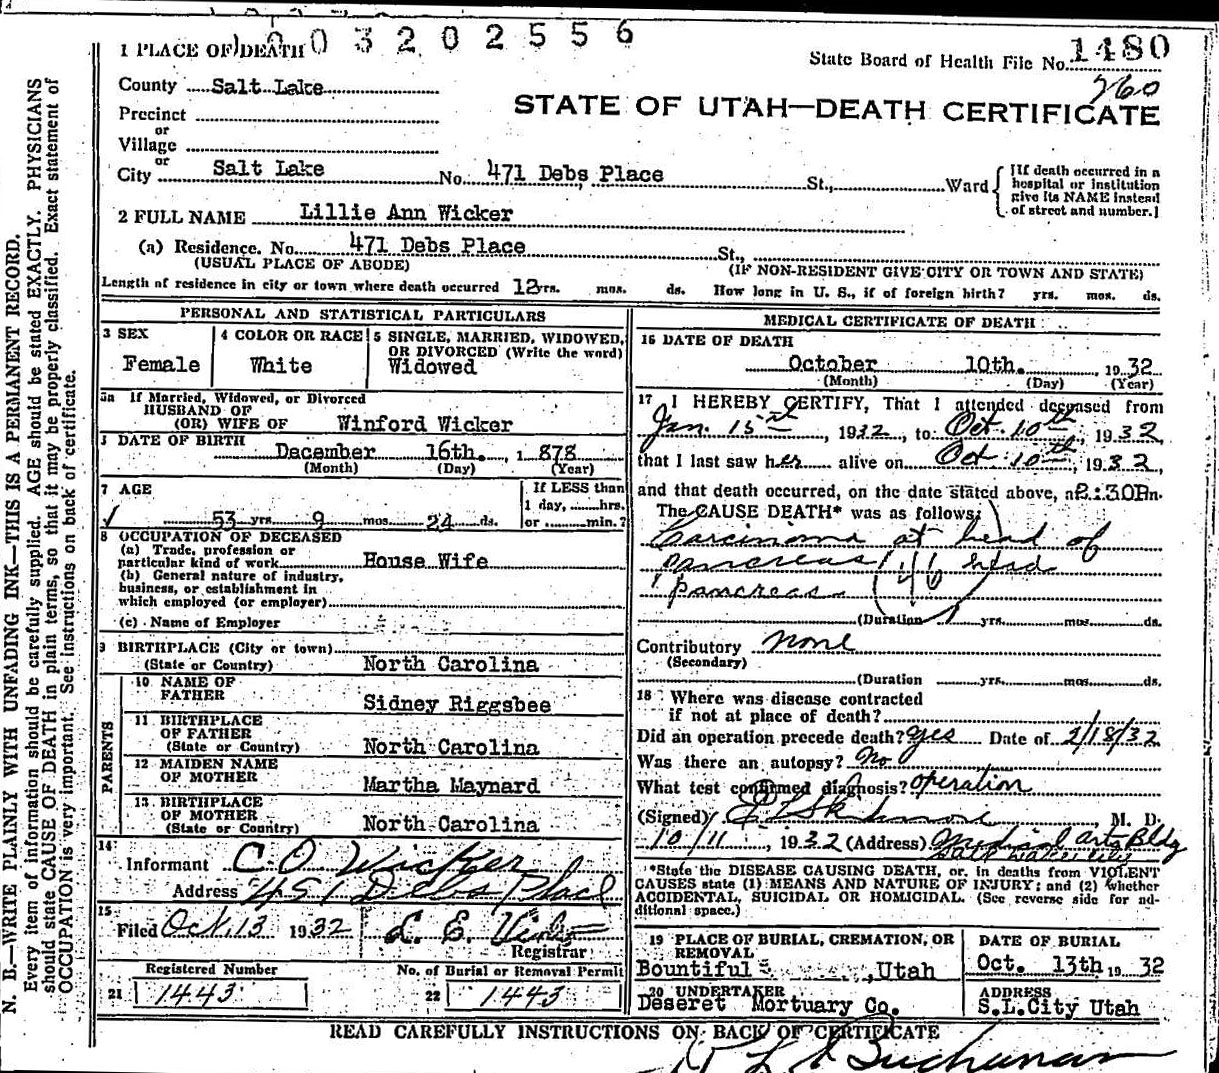 003202556
1 PLACE OF DEATH
State Board of Health File No. 1480
County Salt Lake
760
STATE OF UTAH—DEATH CERTIFICATE
Precinct
or
Village
or
City Salt Lake No. 471 Debs Place St., Ward
{If death occurred in a
hospital or institution
give its NAME instead
of street and number.}
2 FULL NAME Lillie Ann Wicker
(a) Residence. No. 471 Debs Place St.,
(USUAL PLACE OF ABODE) (IF NON-RESIDENT GIVE CITY OR TOWN AND STATE)
Length of residence in city or town where death occurred 12 yrs. mos. ds. How long in U. S., if of foreign birth? yrs. mos. ds.
PERSONAL AND STATISTICAL PARTICULARS
3 SEX
Female
4 COLOR OR RACE
White
5 SINGLE, MARRIED, WIDOWED,
OR DIVORCED (Write the word)
Widowed
5a If Married, Widowed, or Divorced
HUSBAND OF
(OR) WIFE OF Winford Wicker
DATE OF BIRTH
December 16th. 1 878
(Month) (Day) (Year)
7 AGE
53 yrs 9 mos. 24 ds.
If LESS than
1 day, hrs.
or min.?
8 OCCUPATION OF DECEASED
(a) Trade, profession or
particular kind of work House Wife
(b) General nature of industry,
business, or establishment in
which employed (or employer)
(c) Name of Employer
9 BIRTHPLACE (City or town)
(State or Country) North Carolina
PARENTS
10 NAME OF
FATHER Sidney Riggsbee
11 BIRTHPLACE
OF FATHER
(State or Country) North Carolina
12 MAIDEN NAME
OF MOTHER Martha Maynard
13 BIRTHPLACE
OF MOTHER
(State or Country) North Carolina
14
Informant C O Wicker
Address 451 Debs Place
15
Filed Oct. 13 1932
Registrar
Registered Number
21 1443
No. of Burial or Removal Permit
22 1443
MEDICAL CERTIFICATE OF DEATH
16 DATE OF DEATH
October 10th. , 1932
(Month) (Day) (Year)
17 I HEREBY CERTIFY, That I attended deceased from
Jan. 15st , 1932, to Oct. 10th, 1932
that I last saw her alive on Oct 10th, 1932,
and that death occurred, on the date stated above, at 2:30P m.
The CAUSE DEATH* was as follows:
Carcinoma at head of
pancreas 46 head
pancreas
(Duration 1 yrs. mos. ds.
Contributory none
(Secondary)
(Duration yrs. mos. ds.
18 Where was disease contracted
if not at place of death?
Did an operation precede death? yes Date of 2/18/32
Was there an autopsy? No
What test confirmed diagnosis? operation
(Signed) , M. D.
10/11 , 1932 (Address) Medical Arts Bldg
Salt Lake City
*State the DISEASE CAUSING DEATH, or, in deaths from VIOLENT
CAUSES state (1) MEANS AND NATURE OF INJURY; and (2) whether
ACCIDENTAL, SUICIDAL OR HOMICIDAL. (See reverse side for ad-
ditional space.)
19 PLACE OF BURIAL, CREMATION, OR
REMOVAL
Bountiful ,Utah
DATE OF BURIAL
Oct. 13th 19 32
20 UNDERTAKER
Deseret Mortuary Co.
ADDRESS
S.L.City Utah
READ CAREFULLY INSTRUCTIONS ON BACK OF CERTIFICATE
Buchanan
N. B.—WRITE PLAINLY WITH UNFADING INK—THIS IS A PERMANENT RECORD.
Every item of information should be carefully supplied. AGE should be stated EXACTLY. PHYSICIANS
should state CAUSE OF DEATH in plain terms, so that it may be properly classified. Exact statement of
OCCUPATION is very important. See instructions on back of certificate.